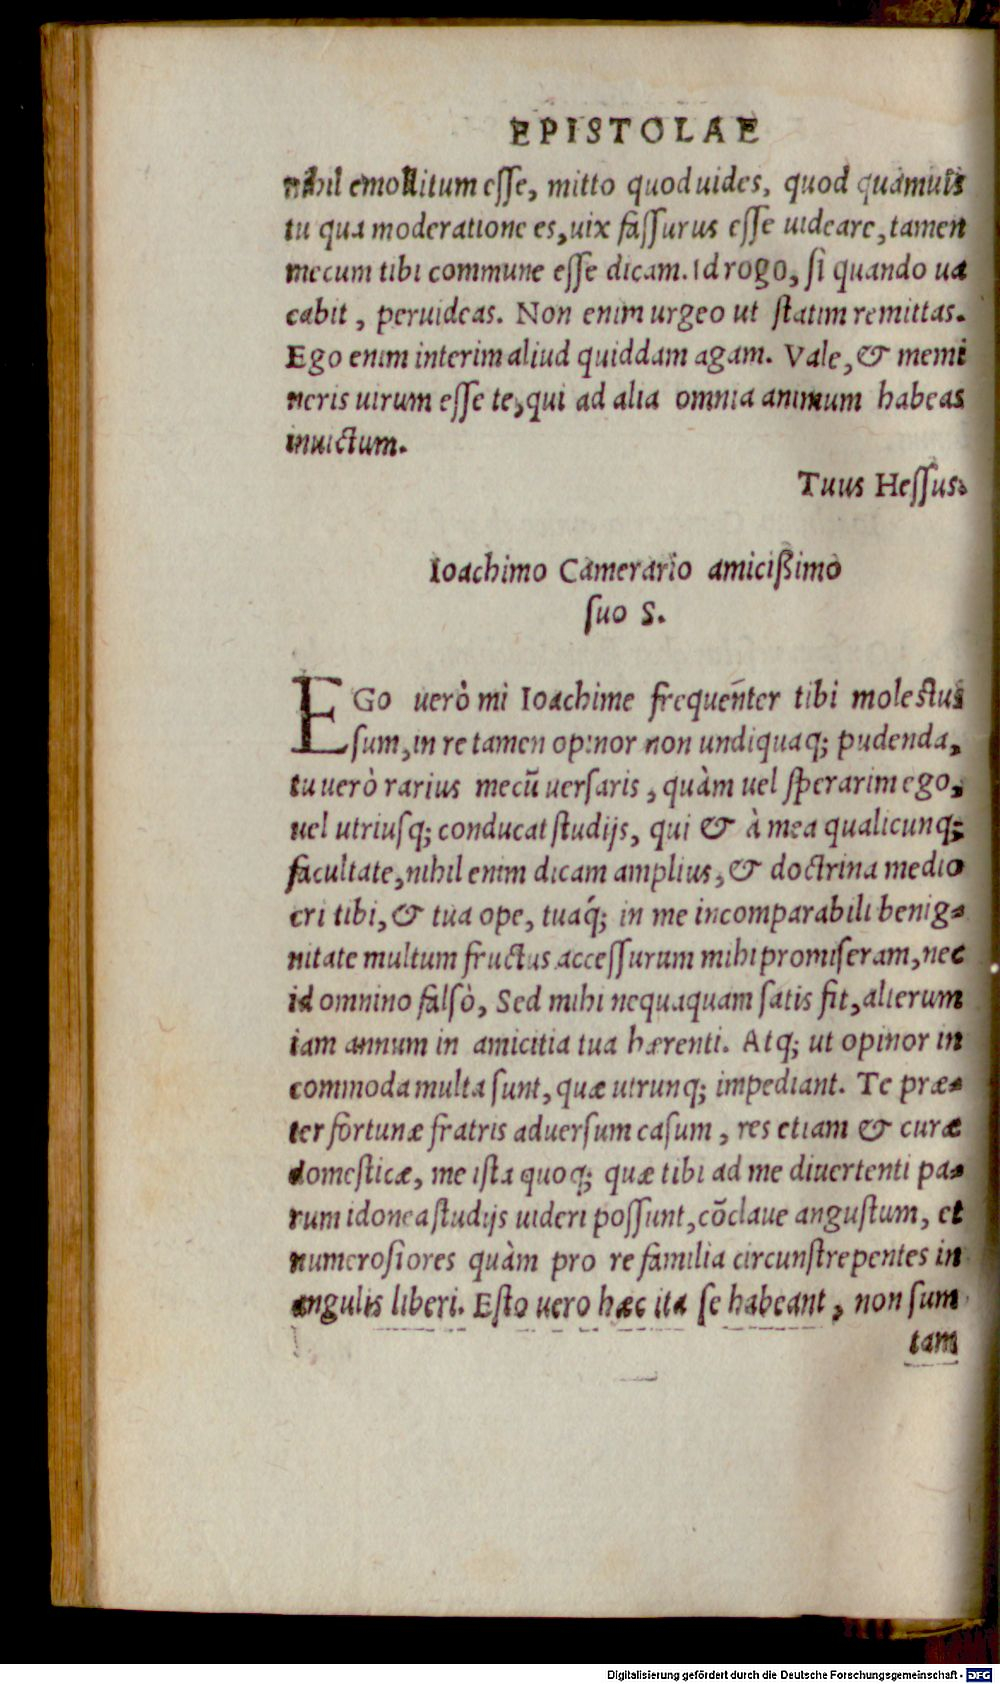 EPISTOLAE
nihil emollitum esse, mitto quod uides, quod quamuis
tu qua moderatione es, uix fassurus esse uideare, tamen
mecum tibi commune esse dicam. Id rogo, si quando ua
cabit, peruideas. Non enim urgeo ut statim remittas.
Ego enim interim aliud quiddam agam. Vale, & memi
neris uirum esse te, qui ad alia omnia animum habeas
inuictum.
Tuus Hessus.
Ioachimo Camerario amicißimo
suo S.
EGo uerò mi Ioachime frequen̄ter tibi molestus
sum, in re tamen opinor non undiquaq; pudenda,
tu uerò rarius mecū uersaris, quàm uel sperarim ego,
uel utriusq; conducat studijs, qui & à mea qualicunq;
facultate, nihil enim dicam amplius, & doctrina medio
cri tibi, & tua ope, tuaq́; in me incomparabili benig-
nitate multum fructus accessurum mihi promiseram, nec
id omnino falsò, Sed mihi nequaquam satis fit, alterum
iam annum in amicitia tua hærenti. Atq; ut opinor in
commoda multa sunt, quæ utrunq; impediant. Te præ-
ter fortunæ fratris aduersum casum, res etiam & curæ
domesticæ, me ista quoq; quæ tibi ad me diuertenti pa-
rum idonea studijs uideri possunt, cōclaue angustum, et
numerosiores quàm pro re familia circunstrepentes in
angulis liberi. Esto uero hæc ita se habeant, non sum
tam
Digitalisierung gefördert durch die Deutsche Forschungsgemeinschaft - DFG